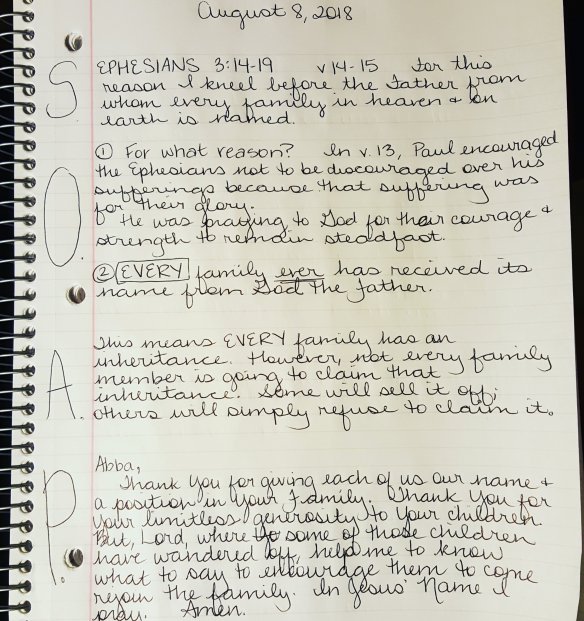 August 8, 2018
S.
EPHESIANS 3:14-19 v 14-15 For this
reason I kneel before the Father from
whom every family in heaven & on
earth is named.
O.
① For what reason? In v. 13, Paul encouraged
the Ephesians not to be discouraged over his
sufferings because that suffering was
for their glory.
He was praying to God for their courage &
strength to remain steadfast.
② EVERY family ever has received its
name from God the Father.
A.
This means EVERY family has an
inheritance. However, not every family
member is going to claim that
inheritance. Some will sell it off;
others will simply refuse to claim it.
P.
Abba,
Thank You for giving each of us our name &
a position in Your Family. Thank You for
Your limitless generosity to Your children.
But, Lord, where some of those children
have wandered off, help me to know
what to say to encourage them to come
rejoin the family. In Jesus' Name I
pray. Amen.